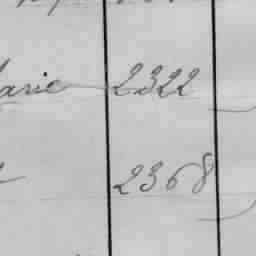 arie 2322
2368